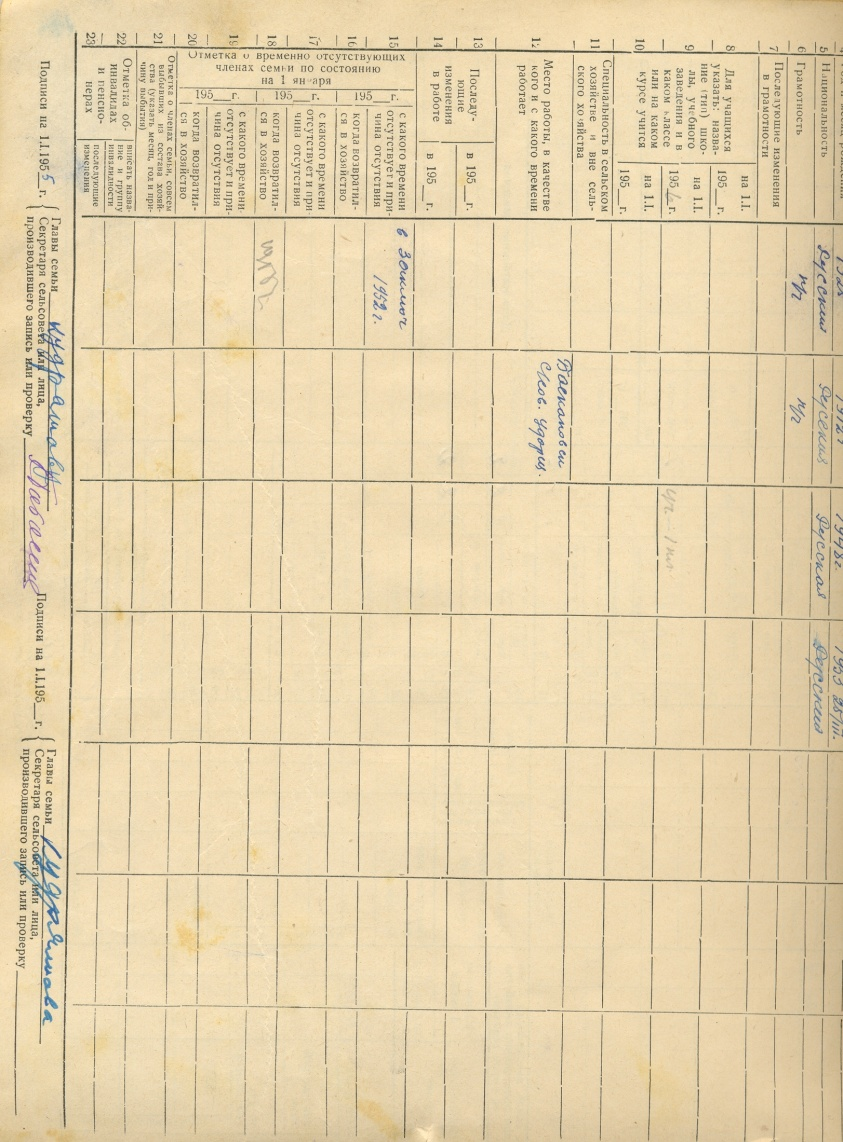 4
5
Национальность
1912 г
1948 г
1953 28/III.
Русский
Русская
Русская
Русский
6
Грамотность
н/г
н/г
7
Последующие изменения
в грамотности
8
Для учащихся
указать: назва-
ние (тип) шко-
лы, учебного
заведения и в
каком классе
или на каком
курсе учится
на 1.I.
195___г.
9
на 1.I.
195___г.
10
на 1.I.
195___г.
11
Специальность в сельском
хозяйстве и вне сель-
ского хозяйства
12
Место работы, в качестве
кого и с какого времени
работает
13
Последу-
ющие
изменения
в работе
в 195___г.
14
в 195___г.
Отметка о временно отсутствующих
членах семьи по состоянию
на 1 января
15
195___г.
с какого времени
отсутствует и при-
чина отсутствия
в заключ
1952 г.
16
когда возвратил-
ся в хозяйство
17
195___г.
с какого времени
отсутствует и при-
чина отсутствия
18
когда возвратил-
ся в хозяйство
19
195___г.
с какого времени
отсутствует и при-
чина отсутствия
20
когда возвратил-
ся в хозяйство
21
Отметка о членах семьи, совсем
выбывших из состава хозяй-
ства (указать месяц, год и при-
чину выбытия)
22
Отметка об
инвалидах
и пенсио-
нерах
вписать назва-
ние и группу
инвалидности
23
последующие
изменения
Подписи на 1.I.1955 г.
Главы семьи
Секретаря сельсовета или лица,
производившего запись или проверку
Подписи на 1.I.195___г.
Главы семьи Кудряшова
Секретаря сельсовета или лица,
производившего запись или проверку